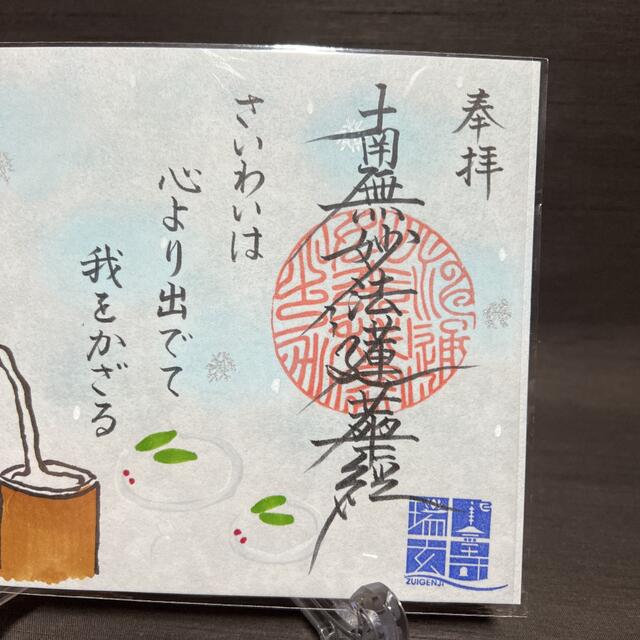 奉拝
南無妙法蓮華経
さいわいは
心より出でて
我をかざる
瑞玄寺
ZUIGENJI